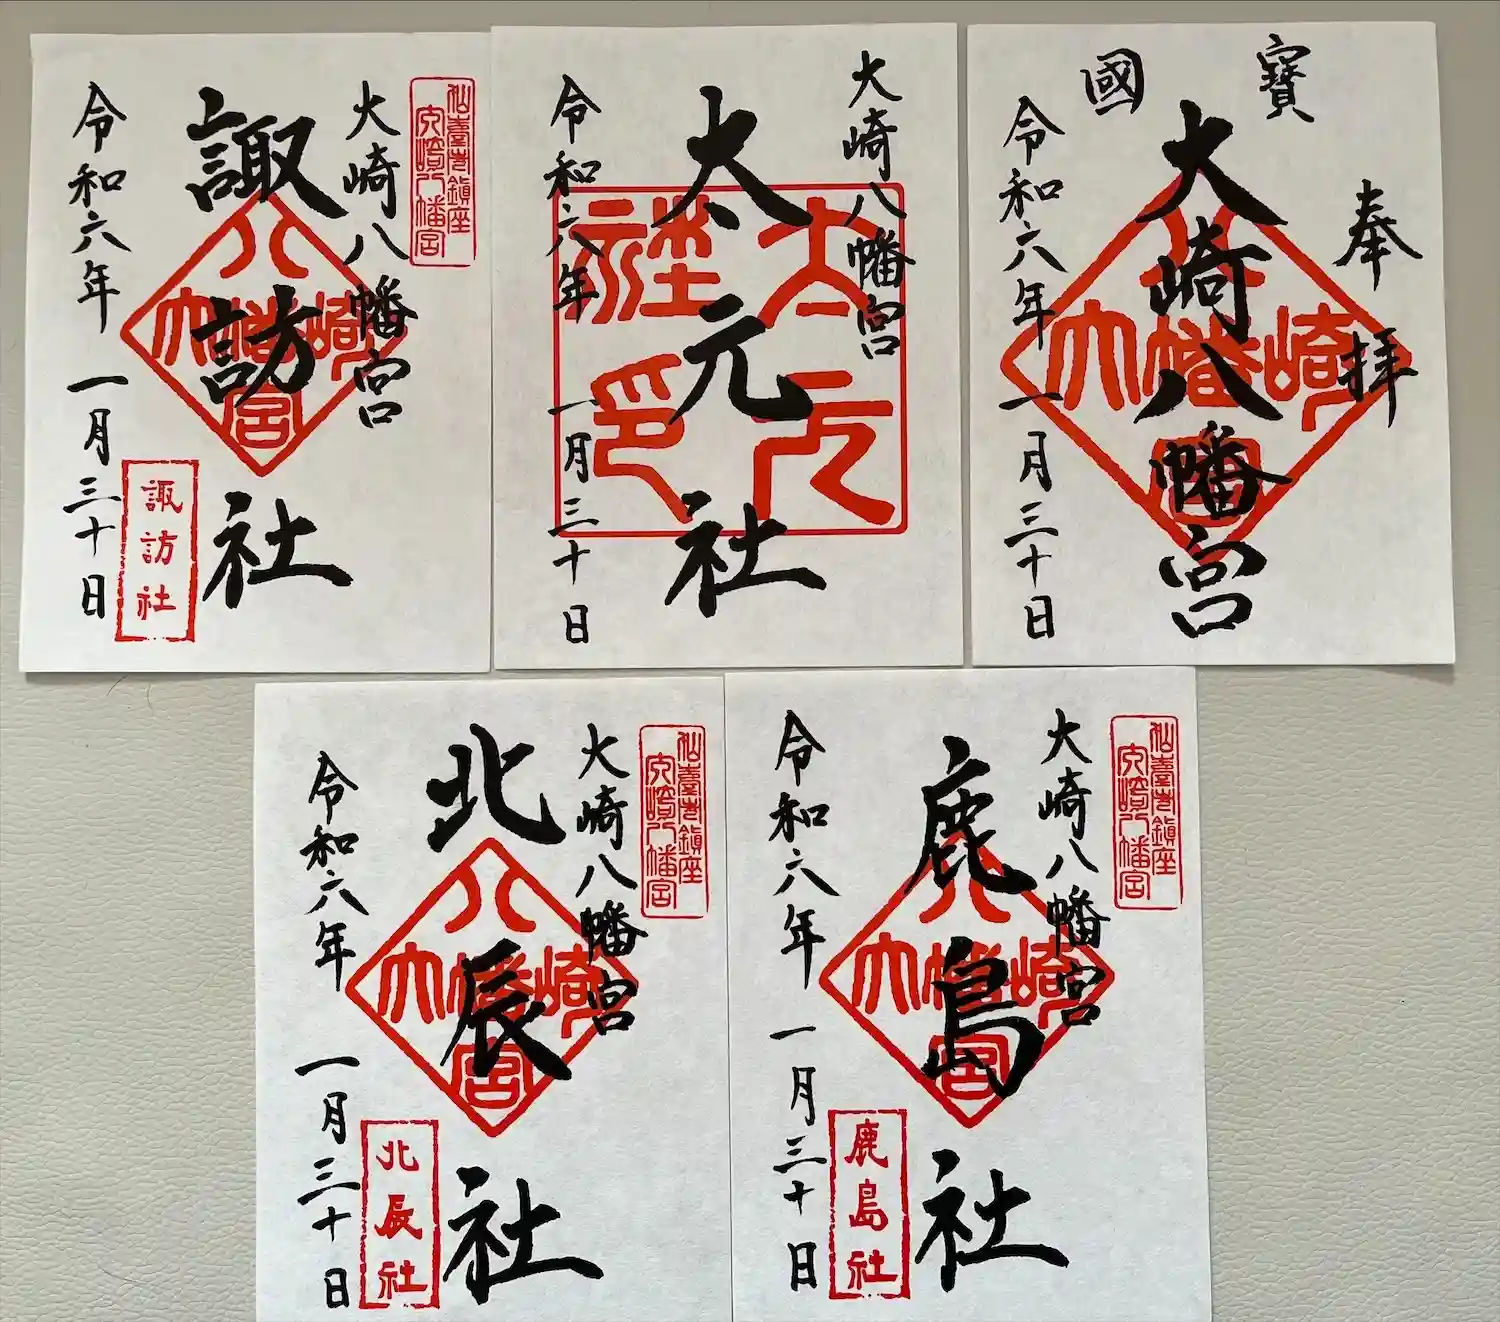 國寶
奉拝
大崎八幡宮
令和六年一月三十日
大崎八幡宮
大崎八幡宮
太元社
令和六年一月三十日
太元社印
仙臺市鎮座
大崎八幡宮
大崎八幡宮
諏訪社
令和六年一月三十日
大崎八幡宮
諏訪社
仙臺市鎮座
大崎八幡宮
大崎八幡宮
鹿島社
令和六年一月三十日
大崎八幡宮
鹿島社
仙臺市鎮座
大崎八幡宮
大崎八幡宮
北辰社
令和六年一月三十日
大崎八幡宮
北辰社